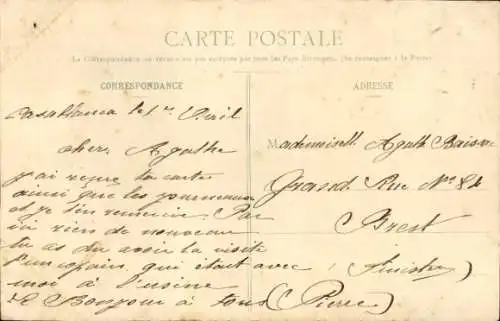 CARTE POSTALE
La Correspondance au recto n'est pas acceptée par tous les Pays étrangers. (Se renseigner à la Poste)
CORRESPONDANCE
ADRESSE
Casablanca le 1er Avril
cher Agathe
j'ai reçue ta carte
ainsi que les journeaux
et je t'en remercie. Par
ici rien de nouveau
tu as du avoir la visite
d'un copain qui était avec
moi à l'usine
Le Bonjour à tous (Pierre)
Mademoiselle Agathe
Grand Rue No 84
Brest
(Finistère)